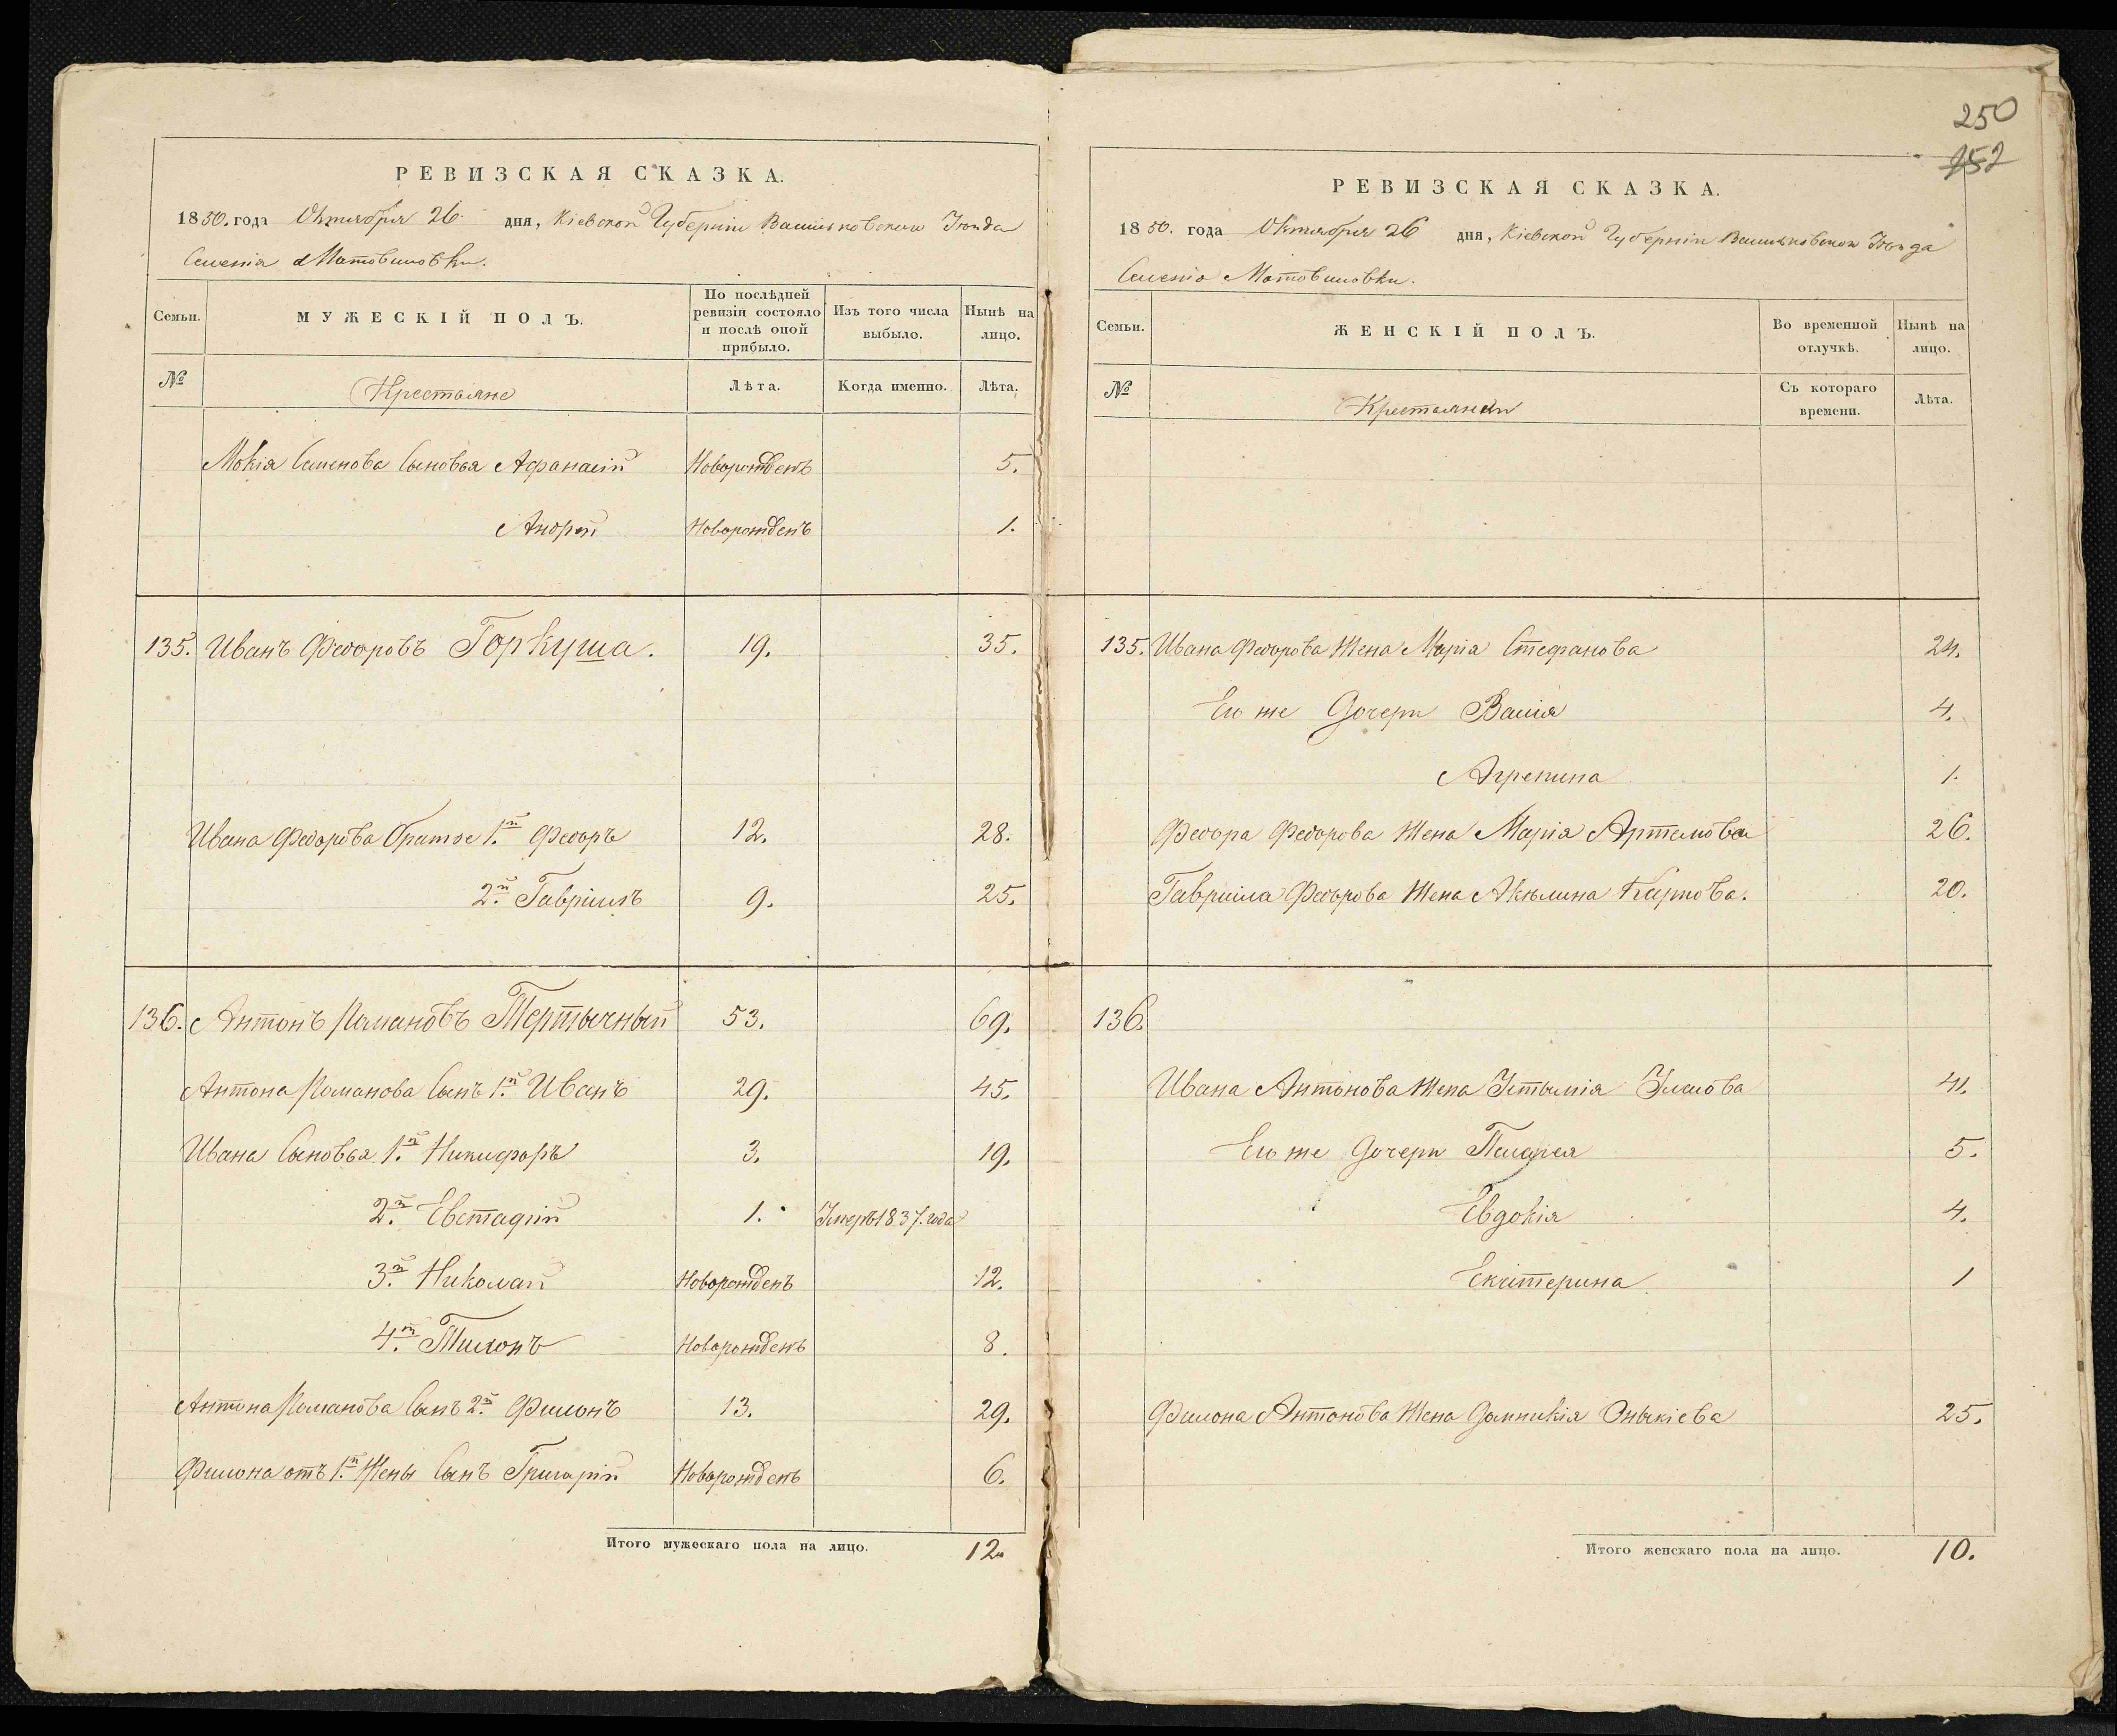 РЕВИЗСКАЯ СКАЗКА.
1850. года Октября 26 дня, Кіевской Губерніи Васильковскаго Уѣзда
Селенія Мотовиловки.
Семьи. МУЖЕСКІЙ ПОЛЪ. По послѣдней ревизіи состояло и послѣ оной прибыло. Изъ того числа выбыло. Нынѣ на лицо.
№ Крестьяне Лѣта. Когда именно. Лѣта.
Мокія Семенова Сыновья Афанасій Новорожденъ 5.
Андрей Новорожденъ 1.
135. Иванъ Федоровъ Горкуша. 19. 35.
Ивана Федорова братъе 1.й Федоръ 12. 28.
2.й Гавріилъ 9. 25.
136. Антонъ Романовъ Тертычный 53. 69.
Антона Романова Сынъ 1.й Иванъ 29. 45.
Ивана Сыновья 1.й Никифоръ 3. 19.
2.й Евстафій 1. Умеръ 1837. года
3.й Николай Новорожденъ 12.
4.й Новорожденъ 8.
Антона Романова Сынъ 2.й Филонъ 13. 29.
Филона отъ 1.й Жены Сынъ Григорій Новорожденъ 6.
Итого мужескаго пола на лицо. 12.
250
252
РЕВИЗСКАЯ СКАЗКА.
1850. года Октября 26 дня, Кіевской Губерніи Васильковскаго Уѣзда
Селенія Мотовиловки.
Семьи. ЖЕНСКІЙ ПОЛЪ. Во временной отлучкѣ. Нынѣ на лицо.
№ Крестьянки Съ котораго времени. Лѣта.
135. Ивана Федорова Жена Марія Стефанова 24.
Его же Дочери 4.
Агрепина 1.
Федора Федорова Жена Марія Артемова 26.
Гавріила Федорова Жена Акѣлина Карпова. 20.
136.
Ивана Антонова Жена 41.
Его же Дочери Пелагея 5.
Евдокія 4.
Екатерина 1
Филона Антонова Жена Домникія 25.
Итого женскаго пола на лицо. 10.